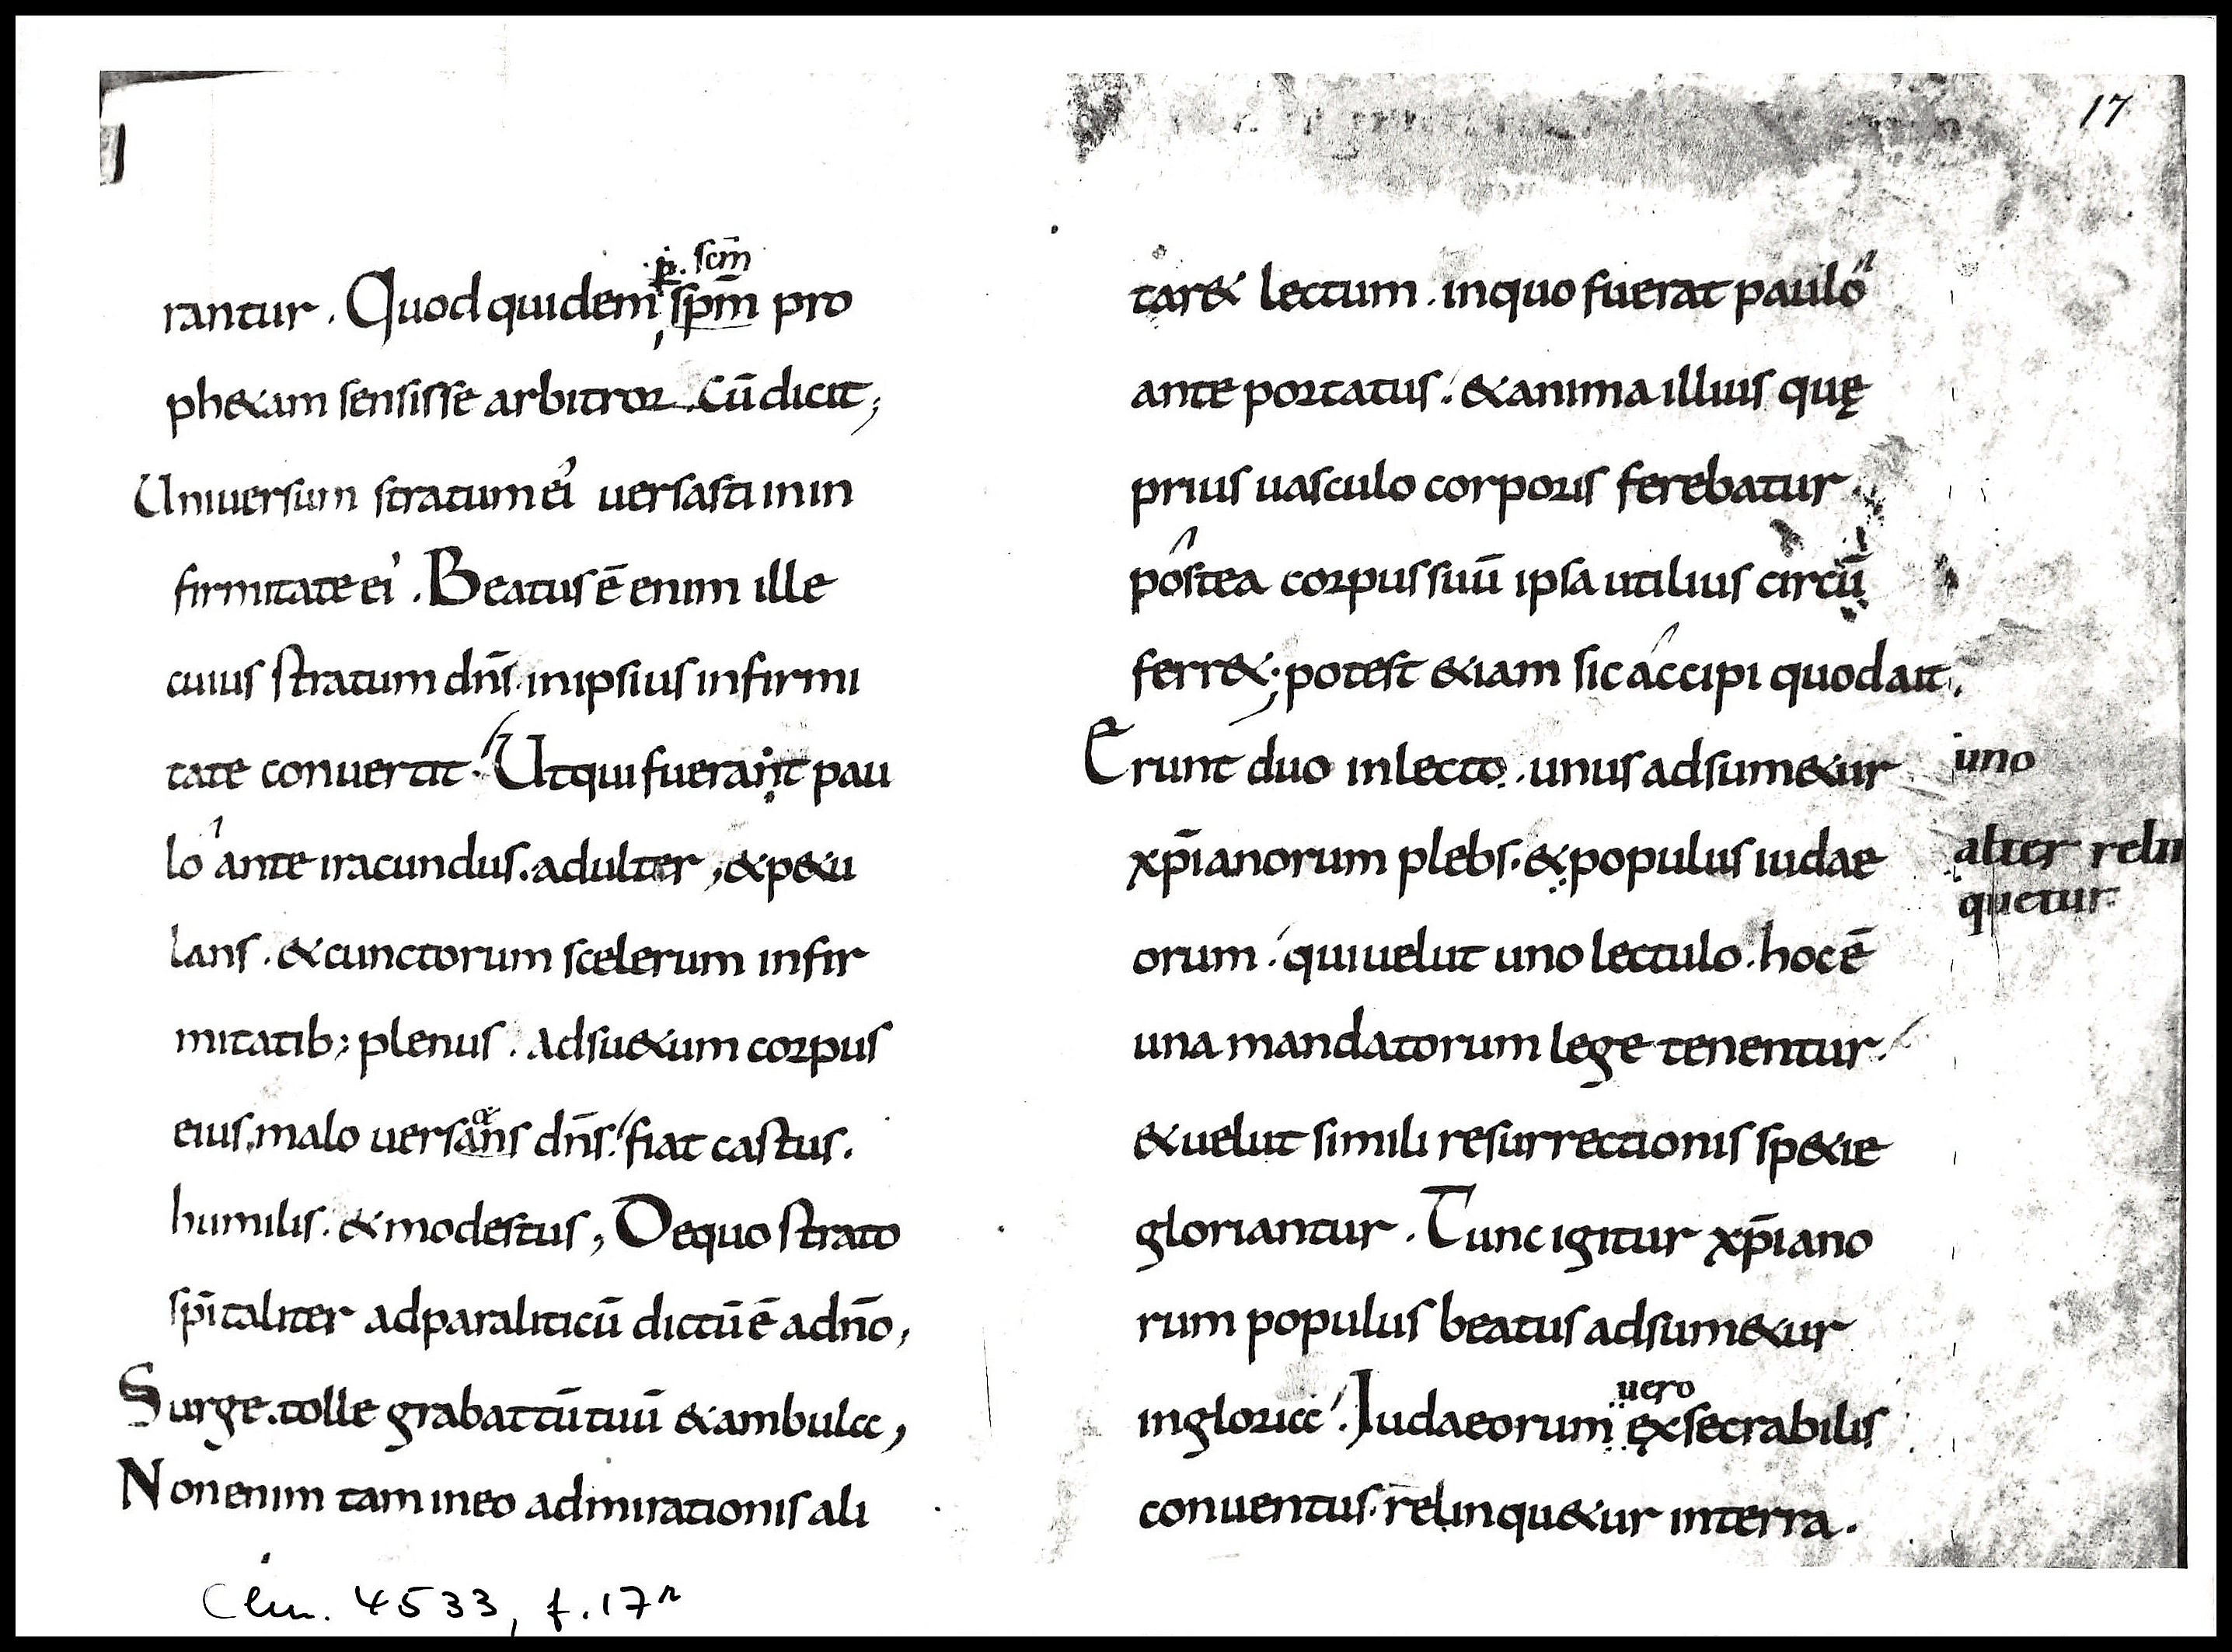 17
p. scm̄
rantur. Quod quidem sp̄m pro
ph&am sensisse arbitror. Cū dicit;
Uniuersum stratum ei' uersasti in in
firmitate ei'. Beatus ē enim ille
cuius stratum dn̄s in ipsius infirmi
tate conuertit. Ut qui fuerant pau
lo ante iracundus. adulter, & p&u
lans. & cunctorum scelerum infir
mitatib; plenus. Adsu&um corpus
eius malo uersans dn̄s. fiat castus.
humilis. & modestus, De quo strato
sp̄italiter ad paraliticū dictū ē a dn̄o,
Surge. tolle grabattū tuū & ambula,
Non enim tam in eo admirationis ali
tar& lectum. in quo fuerat paulo
ante portatus. & anima illius quę
prius uasculo corporis ferebatur.
postea corpus suū ipsa utilius circū
ferr&; potest &iam sic accipi quod ait.
Erunt duo in lecto. unus adsum&ur
uno
xp̄ianorum plebs. & populus iudae
alter relin
quetur
orum. qui uelut uno lectulo. hoc ē
una mandatorum lege tenentur.
& uelut simili resurrectionis sp&ie
gloriantur. Tunc igitur xp̄iano
rum populus beatus adsum&ur
uero
in gloria. Iudaeorum exsecrabilis
conuentus. relinqu&ur in terra.
Clm. 4533, f. 17r